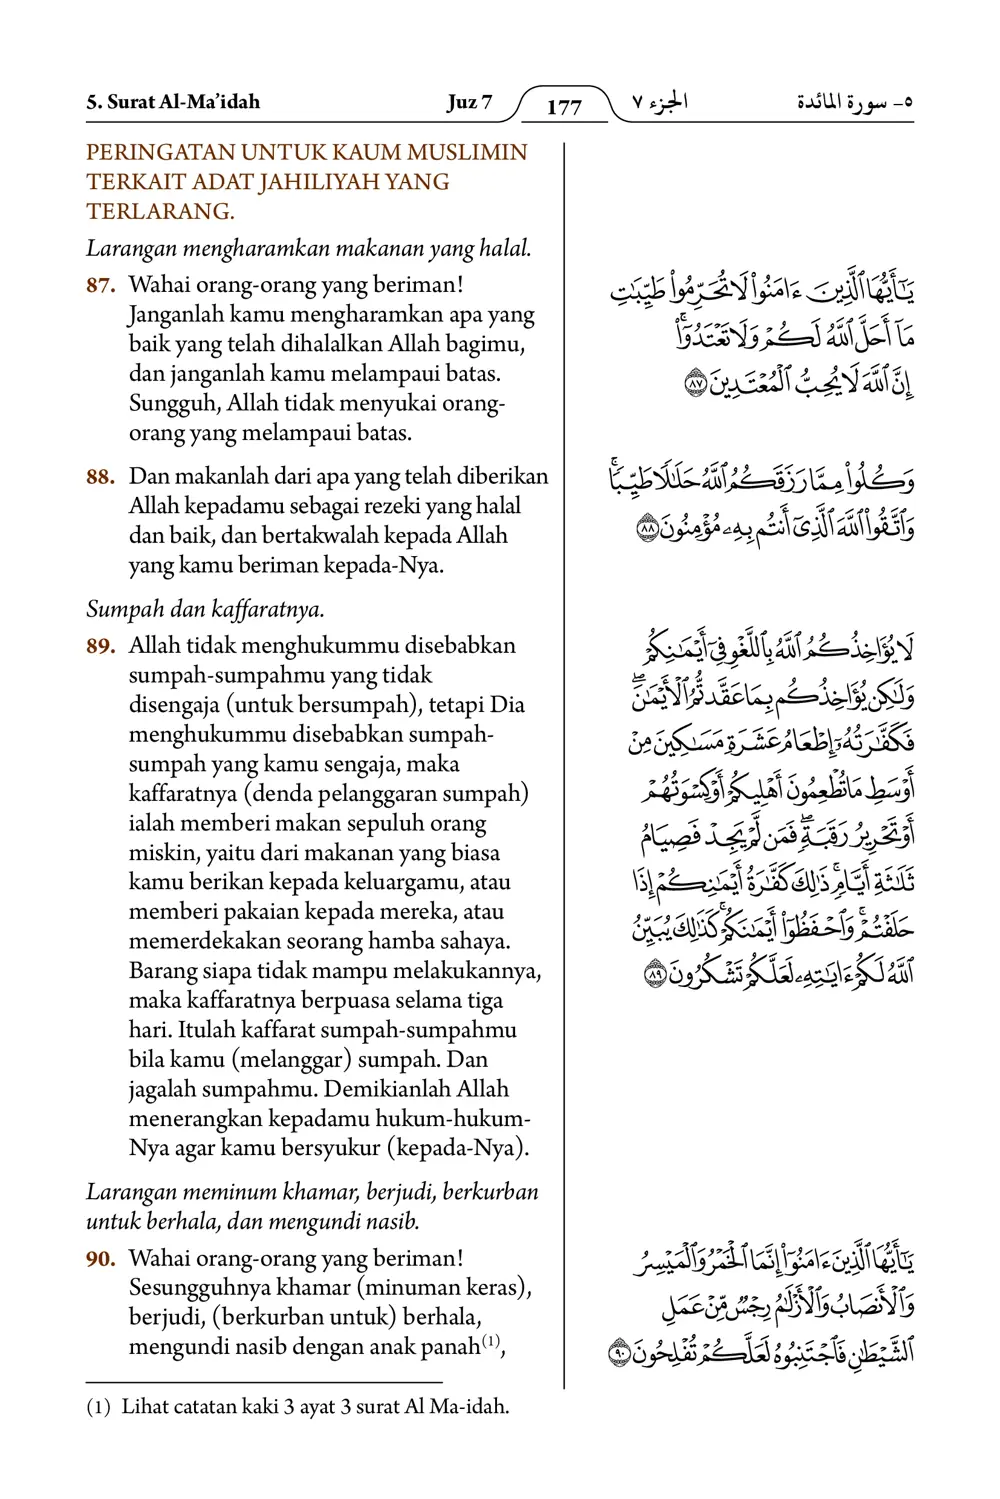 5. Surat Al-Ma’idah Juz 7 177 الجزء ٧ ٥- سورة المائدة
PERINGATAN UNTUK KAUM MUSLIMIN
TERKAIT ADAT JAHILIYAH YANG
TERLARANG.
Larangan mengharamkan makanan yang halal.
87. Wahai orang-orang yang beriman!
Janganlah kamu mengharamkan apa yang
baik yang telah dihalalkan Allah bagimu,
dan janganlah kamu melampaui batas.
Sungguh, Allah tidak menyukai orang-
orang yang melampaui batas.
88. Dan makanlah dari apa yang telah diberikan
Allah kepadamu sebagai rezeki yang halal
dan baik, dan bertakwalah kepada Allah
yang kamu beriman kepada-Nya.
Sumpah dan kaffaratnya.
89. Allah tidak menghukummu disebabkan
sumpah-sumpahmu yang tidak
disengaja (untuk bersumpah), tetapi Dia
menghukummu disebabkan sumpah-
sumpah yang kamu sengaja, maka
kaffaratnya (denda pelanggaran sumpah)
ialah memberi makan sepuluh orang
miskin, yaitu dari makanan yang biasa
kamu berikan kepada keluargamu, atau
memberi pakaian kepada mereka, atau
memerdekakan seorang hamba sahaya.
Barang siapa tidak mampu melakukannya,
maka kaffaratnya berpuasa selama tiga
hari. Itulah kaffarat sumpah-sumpahmu
bila kamu (melanggar) sumpah. Dan
jagalah sumpahmu. Demikianlah Allah
menerangkan kepadamu hukum-hukum-
Nya agar kamu bersyukur (kepada-Nya).
Larangan meminum khamar, berjudi, berkurban
untuk berhala, dan mengundi nasib.
90. Wahai orang-orang yang beriman!
Sesungguhnya khamar (minuman keras),
berjudi, (berkurban untuk) berhala,
mengundi nasib dengan anak panah(1),
يَـٰٓأَيُّهَا ٱلَّذِينَ ءَامَنُوا۟ لَا تُحَرِّمُوا۟ طَيِّبَـٰتِ
مَآ أَحَلَّ ٱللَّهُ لَكُمْ وَلَا تَعْتَدُوٓا۟ ۚ
إِنَّ ٱللَّهَ لَا يُحِبُّ ٱلْمُعْتَدِينَ ٨٧
وَكُلُوا۟ مِمَّا رَزَقَكُمُ ٱللَّهُ حَلَـٰلًا طَيِّبًا ۚ
وَٱتَّقُوا۟ ٱللَّهَ ٱلَّذِىٓ أَنتُم بِهِۦ مُؤْمِنُونَ ٨٨
لَا يُؤَاخِذُكُمُ ٱللَّهُ بِٱللَّغْوِ فِىٓ أَيْمَـٰنِكُمْ
وَلَـٰكِن يُؤَاخِذُكُم بِمَا عَقَّدتُّمُ ٱلْأَيْمَـٰنَ ۖ
فَكَفَّـٰرَتُهُۥٓ إِطْعَامُ عَشَرَةِ مَسَـٰكِينَ مِنْ
أَوْسَطِ مَا تُطْعِمُونَ أَهْلِيكُمْ أَوْ كِسْوَتُهُمْ
أَوْ تَحْرِيرُ رَقَبَةٍ ۖ فَمَن لَّمْ يَجِدْ فَصِيَامُ
ثَلَـٰثَةِ أَيَّامٍ ۚ ذَٰلِكَ كَفَّـٰرَةُ أَيْمَـٰنِكُمْ إِذَا
حَلَفْتُمْ ۚ وَٱحْفَظُوٓا۟ أَيْمَـٰنَكُمْ ۚ كَذَٰلِكَ يُبَيِّنُ
ٱللَّهُ لَكُمْ ءَايَـٰتِهِۦ لَعَلَّكُمْ تَشْكُرُونَ ٨٩
يَـٰٓأَيُّهَا ٱلَّذِينَ ءَامَنُوٓا۟ إِنَّمَا ٱلْخَمْرُ وَٱلْمَيْسِرُ
وَٱلْأَنصَابُ وَٱلْأَزْلَـٰمُ رِجْسٌ مِّنْ عَمَلِ
ٱلشَّيْطَـٰنِ فَٱجْتَنِبُوهُ لَعَلَّكُمْ تُفْلِحُونَ ٩٠
(1) Lihat catatan kaki 3 ayat 3 surat Al Ma-idah.